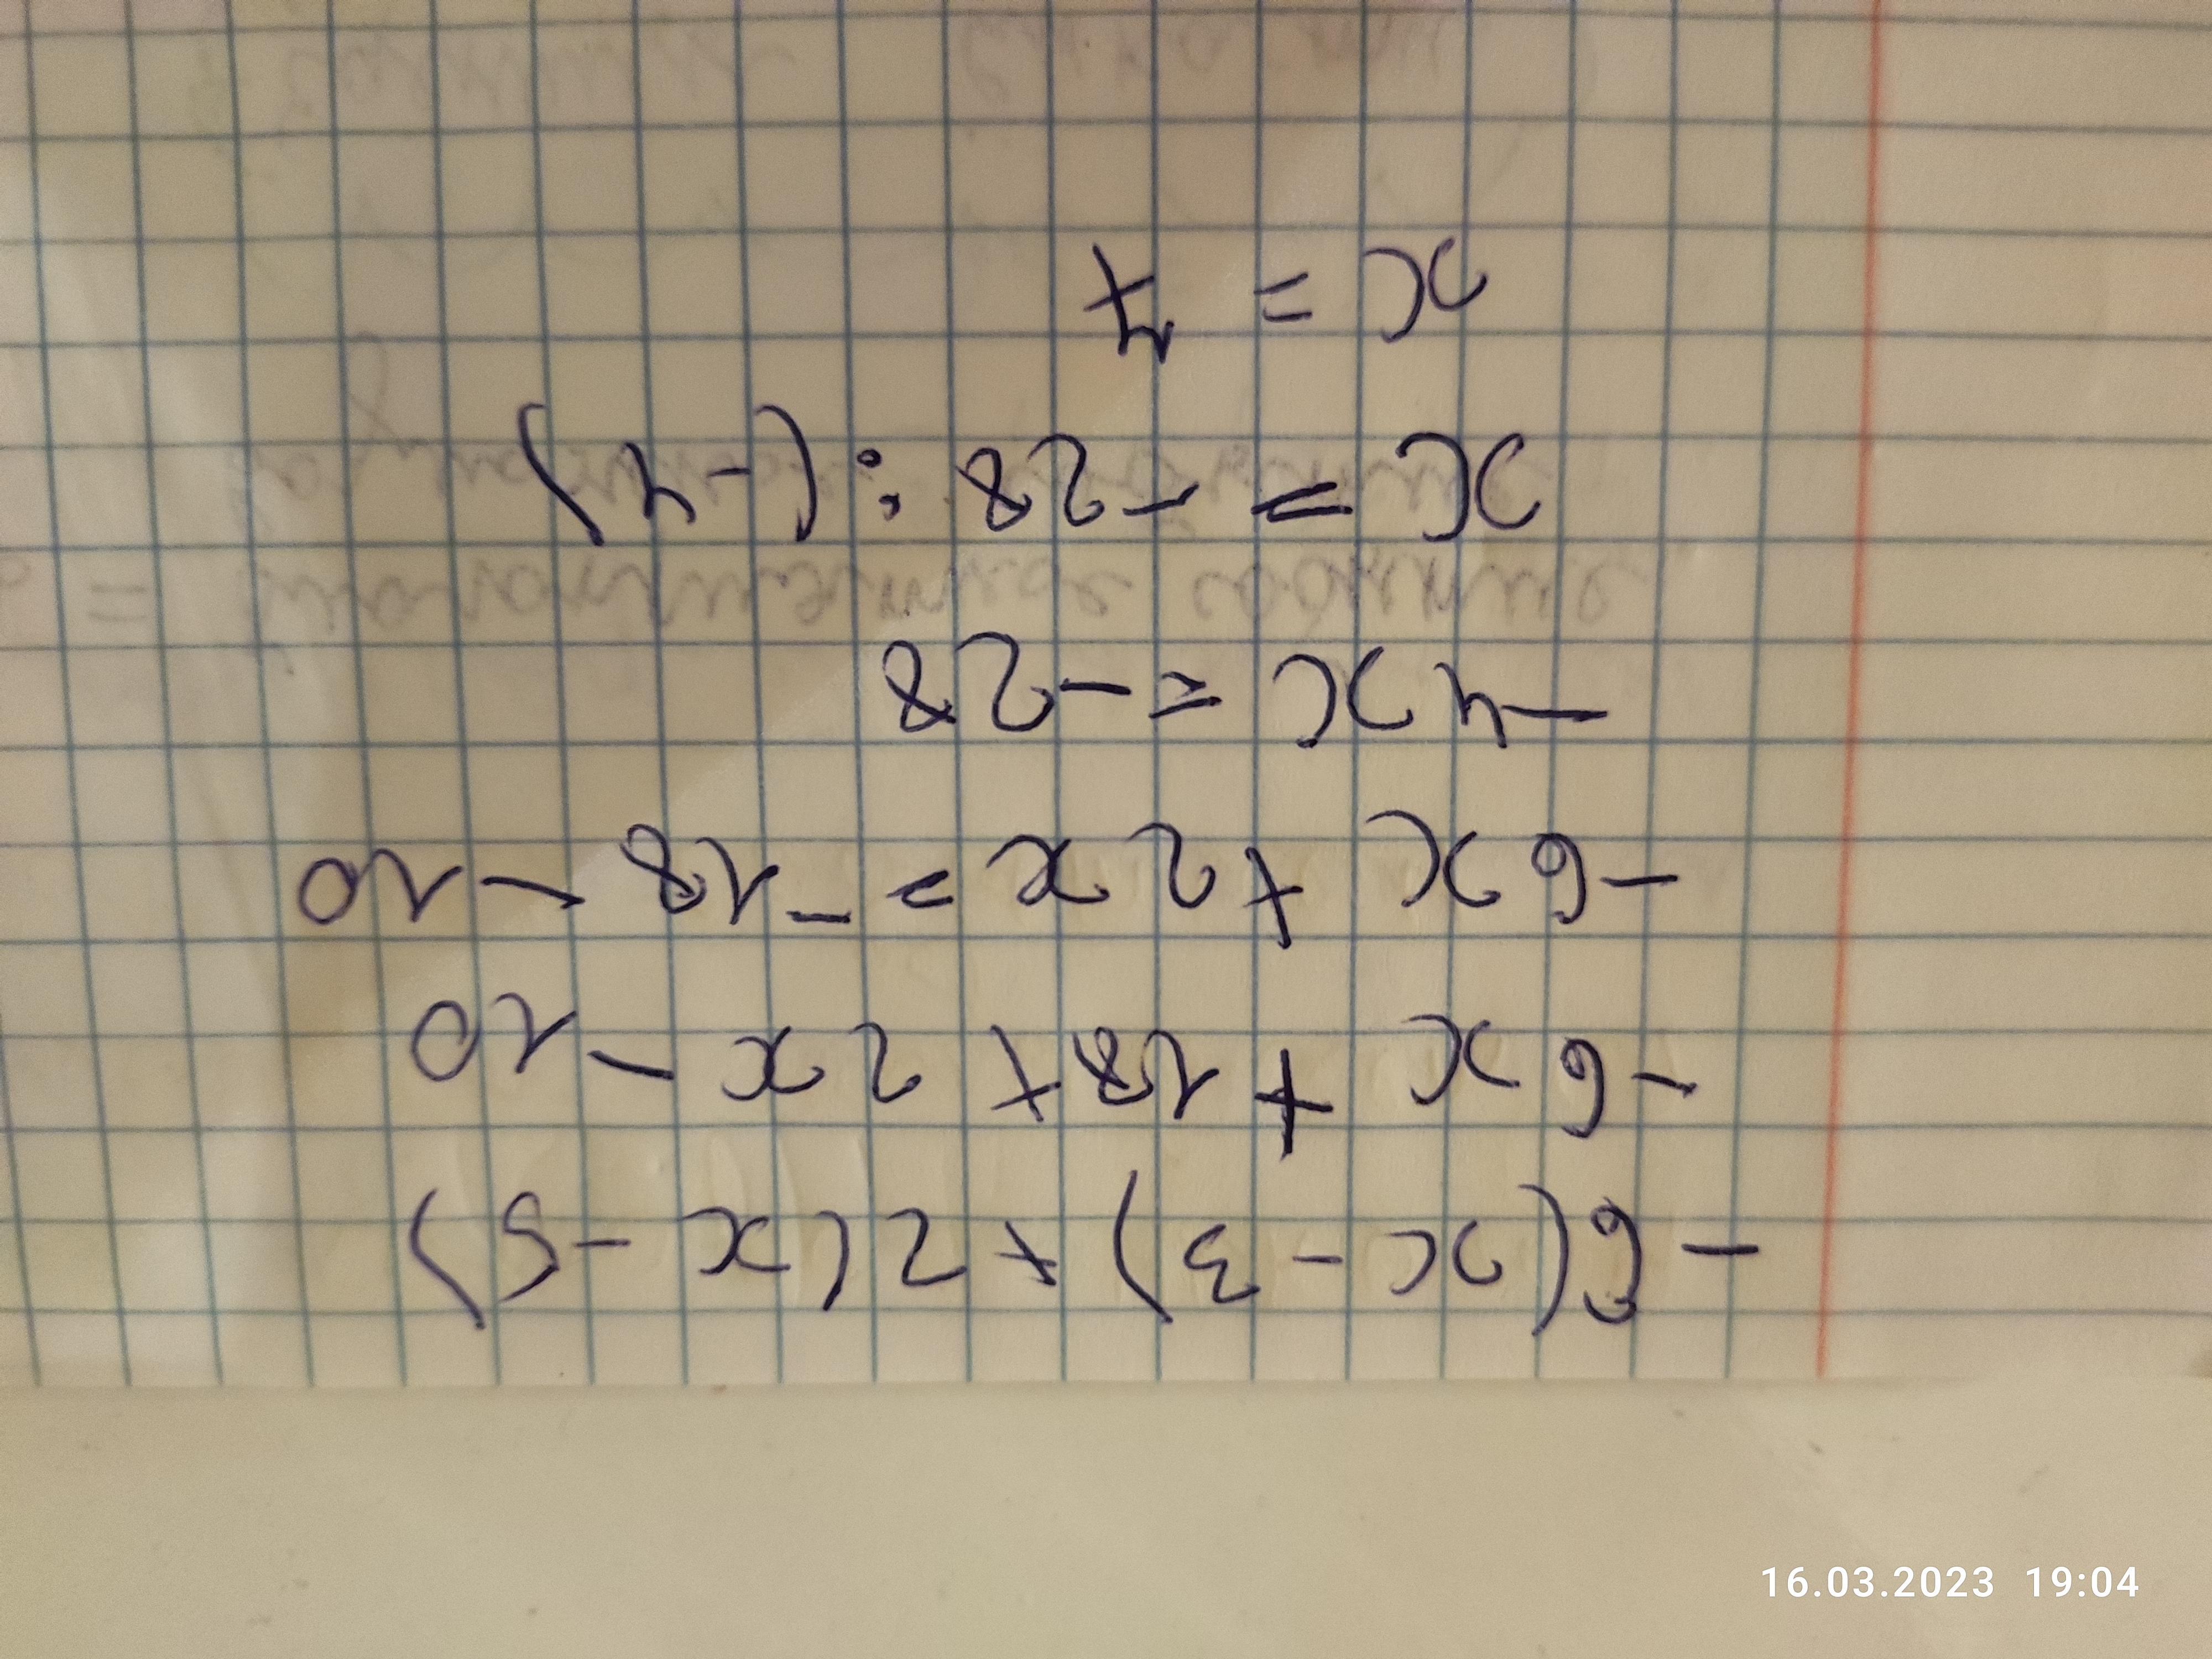 -6(x-3)+2(x-5)
-6x+18+2x-10
-6x+2x=-18-10
-4x=-28
x=-28:(-4)
x=7
16.03.2023 19:04